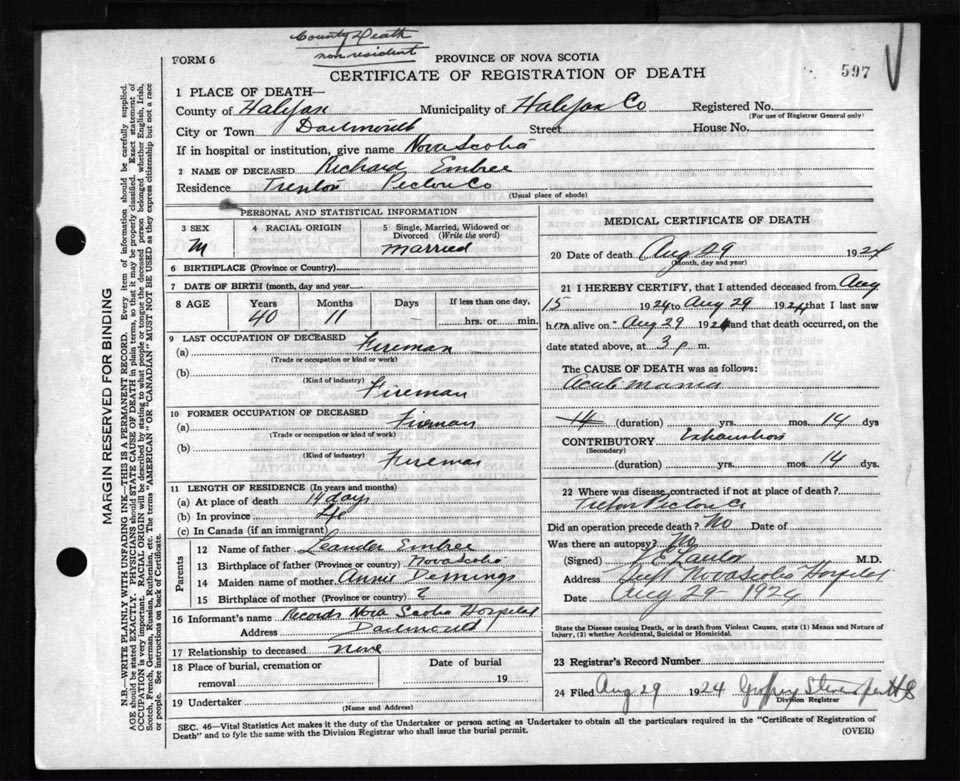 County Death
non resident
FORM 6
PROVINCE OF NOVA SCOTIA
CERTIFICATE OF REGISTRATION OF DEATH
597
1 PLACE OF DEATH—
County of Halifax Municipality of Halifax Co Registered No.
(For use of Registrar General only)
City or Town Dartmouth Street House No.
If in hospital or institution, give name Nova Scotia
2 NAME OF DECEASED Richard Embree
Residence Trenton Pictou Co
(Usual place of abode)
PERSONAL AND STATISTICAL INFORMATION
3 SEX
M
4 RACIAL ORIGIN
5 Single, Married, Widowed or Divorced (Write the word)
Married
6 BIRTHPLACE (Province or Country)
7 DATE OF BIRTH (month, day and year)
8 AGE Years Months Days If less than one day
40 11 hrs. or min.
9 LAST OCCUPATION OF DECEASED
(a) Fireman
(Trade or occupation or kind or work)
(b)
(Kind of industry)
Fireman
10 FORMER OCCUPATION OF DECEASED
(a) Fireman
(Trade or occupation or kind of work)
(b)
(Kind of industry)
Fireman
11 LENGTH OF RESIDENCE (In years and months)
(a) At place of death 14 days
(b) In province 40
(c) In Canada (if an immigrant)
Parents
12 Name of father Leander Embree
13 Birthplace of father (Province or country) Nova Scotia
14 Maiden name of mother Annie Demings
15 Birthplace of mother (Province or country) ?
16 Informant's name Records Nova Scotia Hospital
Address Dartmouth
17 Relationship to deceased none
18 Place of burial, cremation or removal
Date of burial
19
19 Undertaker
(Name and Address)
MEDICAL CERTIFICATE OF DEATH
20 Date of death Aug 29 1924
(Month, day and year)
21 I HEREBY CERTIFY, that I attended deceased from Aug
15 1924 to Aug 29 1924 that I last saw
him alive on Aug 29 192 and that death occurred, on the
date stated above, at 3 p m.
The CAUSE OF DEATH was as follows:
Acute mania
14 (duration) yrs. mos. 14 dys
CONTRIBUTORY Exhaustion
(Secondary)
(duration) yrs. mos. 14 dys.
22 Where was disease contracted if not at place of death?
Pictou Co
Did an operation precede death? No Date of
Was there an autopsy? No
(Signed) M.D.
Address Supt Nova Scotia Hospital
Date Aug 29 - 1924
State the Disease causing Death, or in death from Violent Causes, state (1) Means and Nature of
Injury, (2) whether Accidental, Suicidal or Homicidal.
23 Registrar's Record Number
24 Filed Aug 29 1924
Division Registrar
SEC. 46—Vital Statistics Act makes it the duty of the Undertaker or person acting as Undertaker to obtain all the particulars required in the "Certificate of Registration of
Death" and to fyle the same with the Division Registrar who shall issue the burial permit.
(OVER)
MARGIN RESERVED FOR BINDING
N.B.—WRITE PLAINLY WITH UNFADING INK—THIS IS A PERMANENT RECORD. Every item of information should be carefully supplied.
AGE should be stated EXACTLY. PHYSICIANS should STATE CAUSE OF DEATH in plain terms, so that it may be properly classified. Exact statement of
OCCUPATION is very important. RACIAL ORIGIN will be described by stating to what people or tongue the deceased person belonged whether English, Irish,
Scotch, French, German, Russian, Ruthenian, etc. The terms "AMERICAN" OR "CANADIAN" MUST NOT BE USED as they express citizenship but not a race
or people. See instructions on back of Certificate.